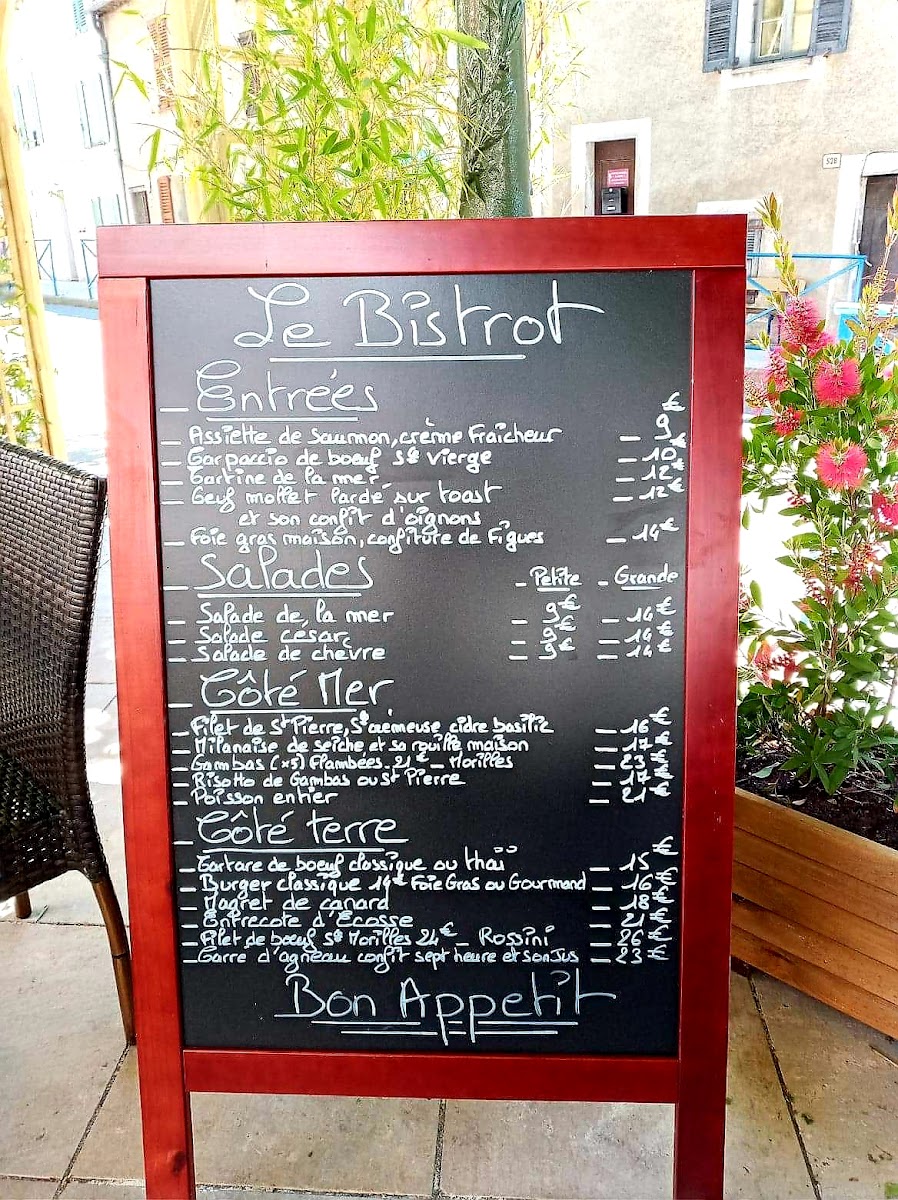 Le Bistrot
— Entrées €
— Assiette de Saumon, crème Fraicheur — 9
— Carpaccio de boeuf Sce Vierge — 10€
— Tartine de la mer — 12€
— Oeuf mollet lardé sur toast — 12€
et son confit d'oignons
— Foie gras maison, confiture de Figues — 14€
— Salades - Petite - Grande
— Salade de la mer — 9€ — 14€
— Salade césar — 9€ — 14€
— Salade de chèvre — 9€ — 14€
— Côté Mer
— Filet de St Pierre, Sce crémeuse cidre basilic — 16€
— Milanaise de seiche et sa rouille maison — 17€
— Gambas (x5) Flambées 21€ — Morilles — 23€
— Risotto de Gambas ou St Pierre — 17€
— Poisson entier — 21€
— Côté terre
— Tartare de boeuf classique ou thaï — 15€
— Burger classique 14€ Foie Gras ou Gourmand — 16€
— Magret de canard — 18€
— Entrecote d'Écosse — 21€
— Filet de boeuf Sce Morilles 24€ — Rossini — 26€
— Carré d'agneau confit sept heure et son Jus — 23€
Bon Appetit